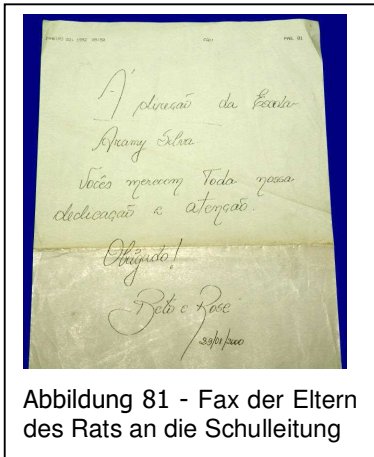 À direção da Escola
Aramy Silva
Vocês merecem Toda nossa
dedicação e atenção.
Obrigado!
Beto e Rose
Abbildung 81 - Fax der Eltern
des Rats an die Schulleitung